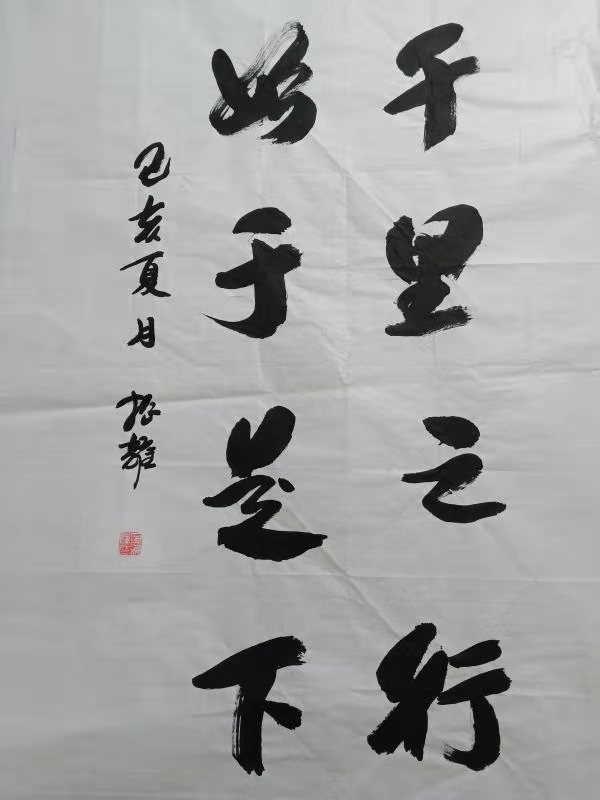 千里之行
始于足下
己亥夏月 振雄